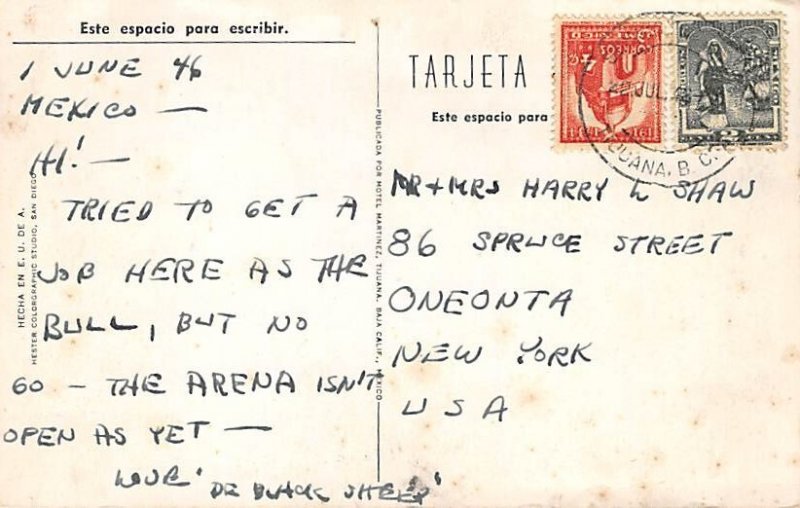 Este espacio para escribir.
1 JUNE 46
MEXICO —
HI! —
TRIED TO GET A
JOB HERE AS THE
BULL, BUT NO
GO — THE ARENA ISN'T
OPEN AS YET —
LOVE
'DE BLACK SHEEP'
HECHA EN E. U. DE A.
HESTER COLORGRAPHIC STUDIO, SAN DIEGO
PUBLICADA POR HOTEL MARTINEZ, TIJUANA, BAJA CALIF., MEXICO
TARJETA
Este espacio para
CORREOS
2
JUL
TIJUANA, B. C.
MR + MRS HARRY L SHAW
86 SPRUCE STREET
ONEONTA
NEW YORK
USA